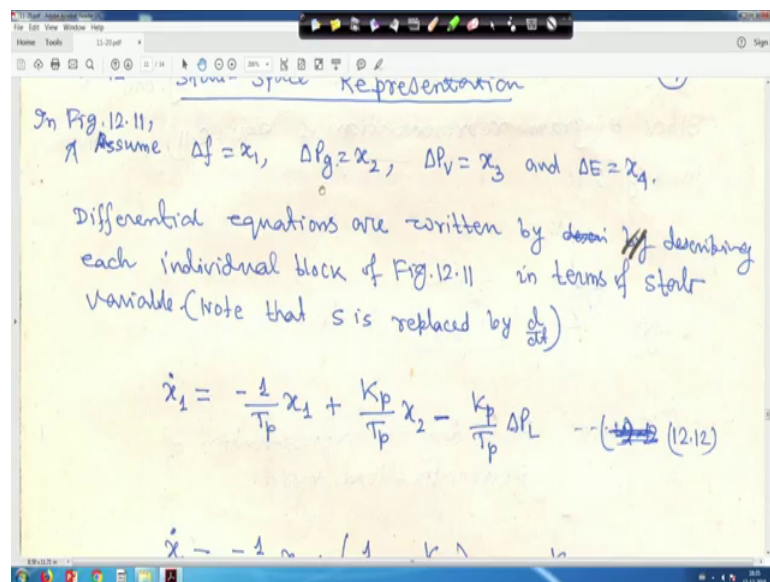 11-20.pdf - Adobe Acrobat Reader DC
File Edit View Window Help
Home Tools 11-20.pdf × Sign
11 / 14
State Space Representation
In Fig. 12.11,
Assume Δf = x₁, ΔPg = x₂, ΔPv = x₃ and ΔE = x₄.
Differential equations are written by describing
each individual block of Fig. 12.11 in terms of state
variable (Note that S is replaced by d/dt)
ẋ₁ = -1/Tp x₁ + Kp/Tp x₂ - Kp/Tp ΔPL --- (12.12)